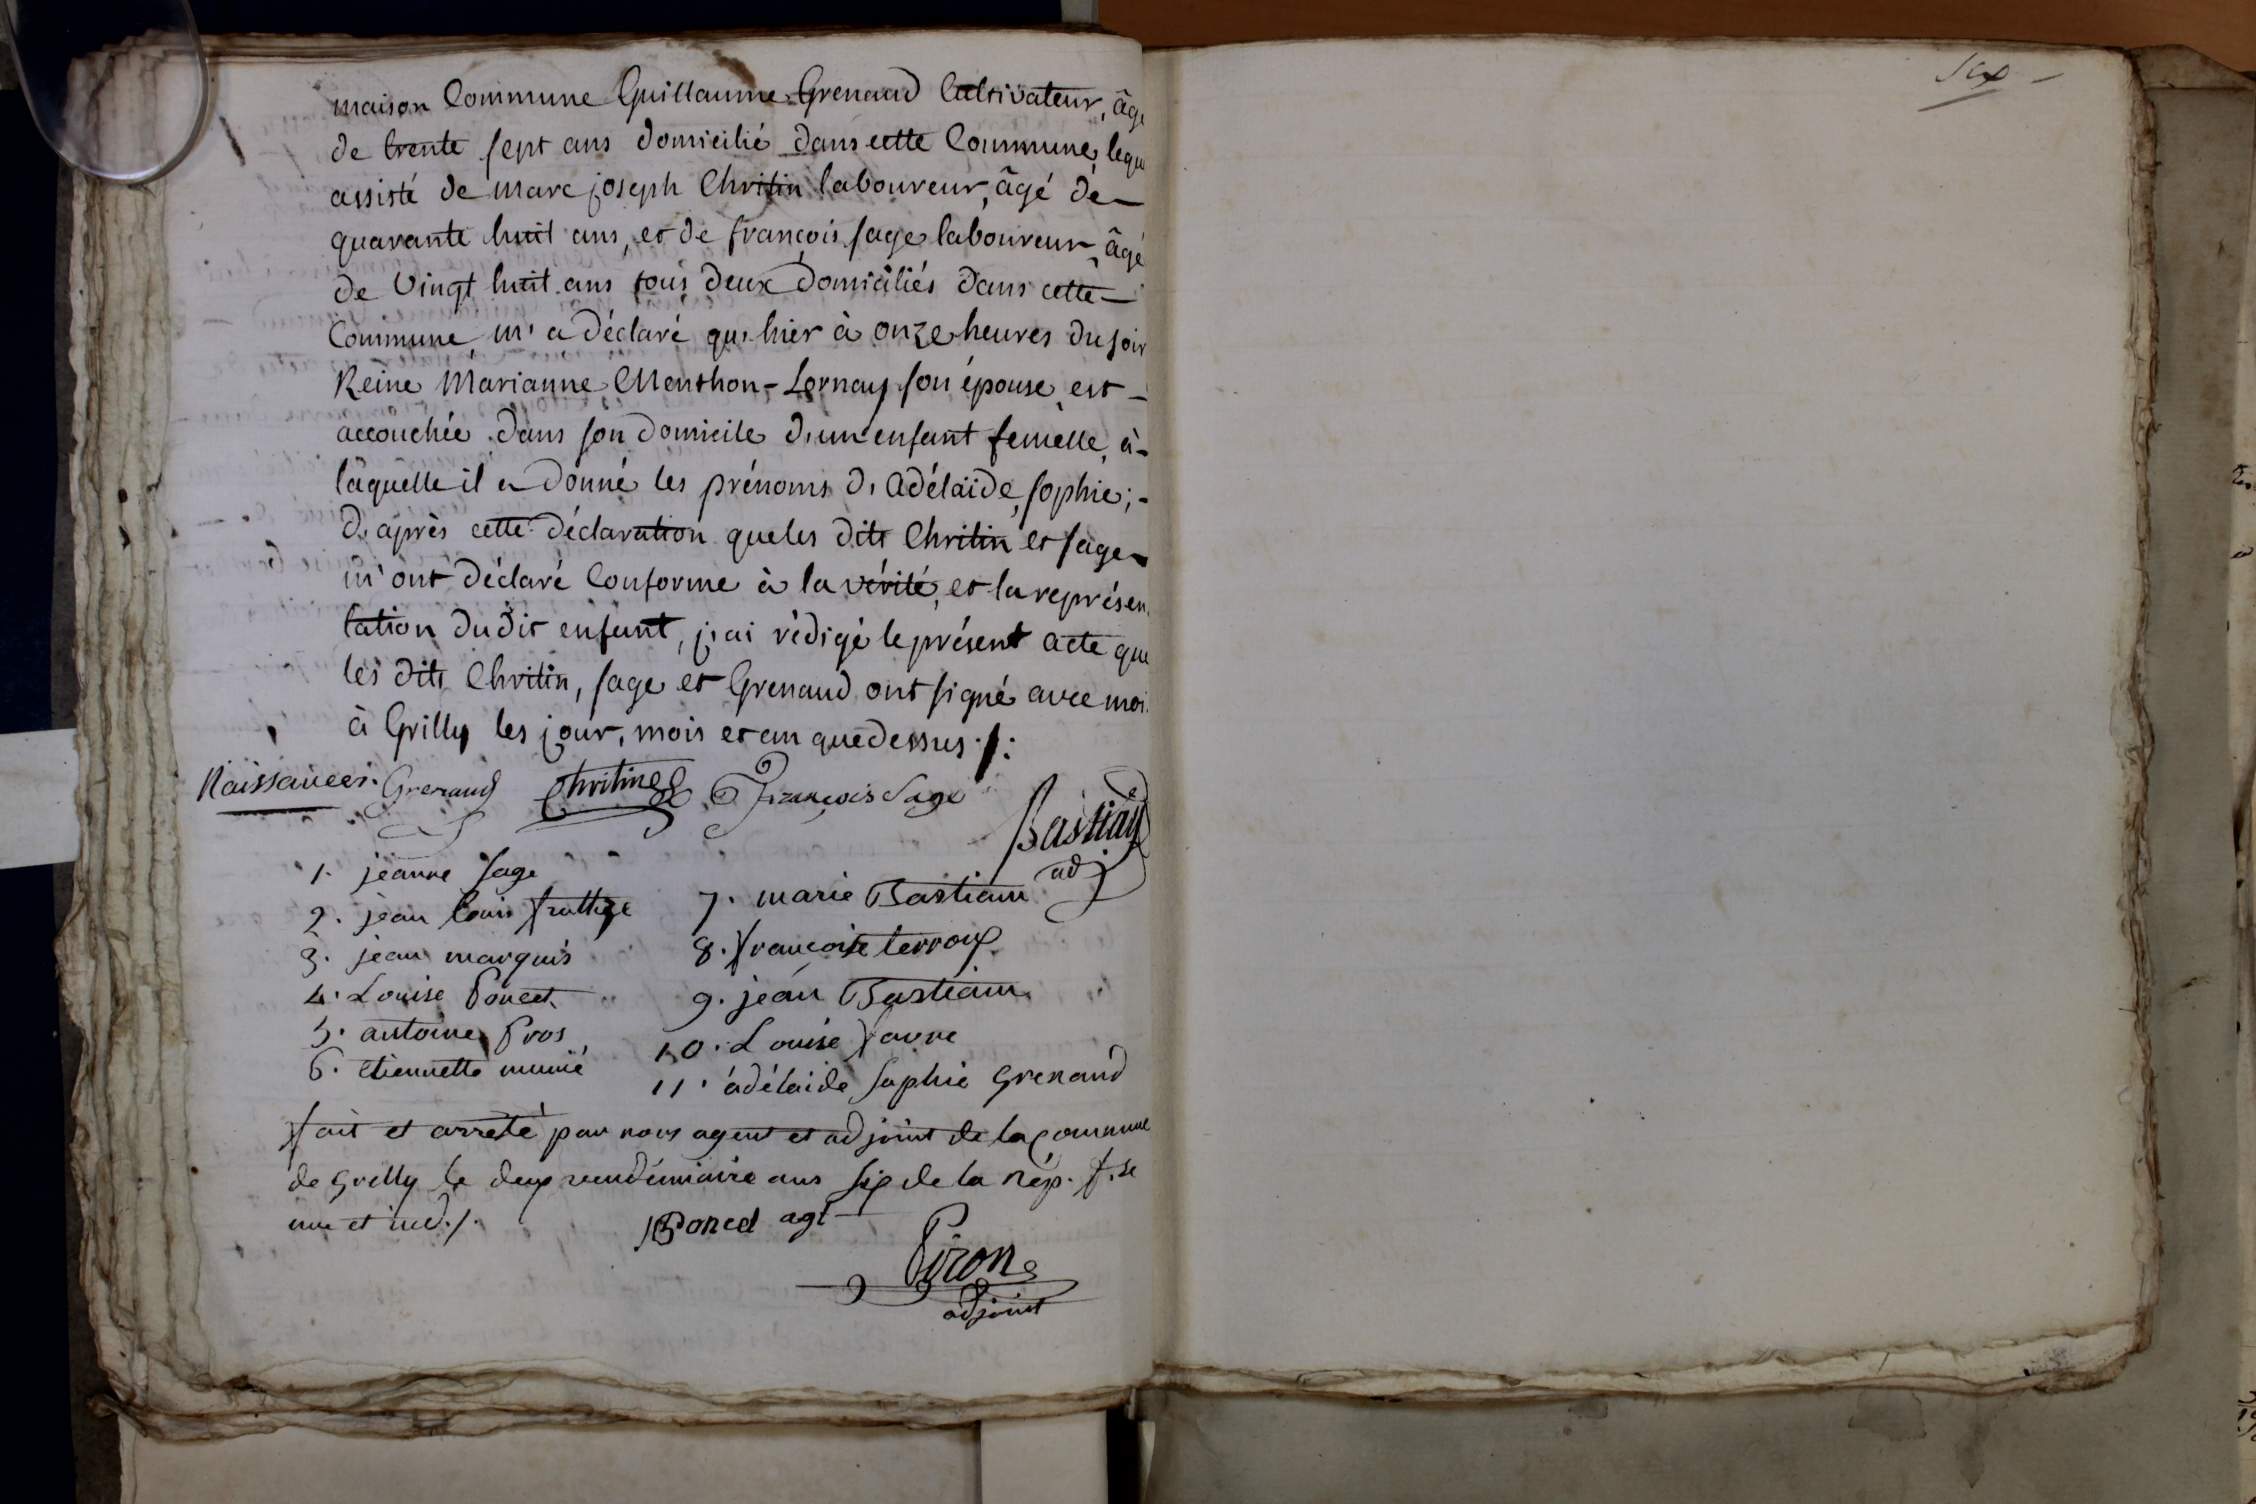 maison Commune Guillaume Grenaud Cultivateur, âgé
de trente sept ans domicilié dans cette Commune, lequ
assisté de marc joseph Chritin laboureur, âgé de
quarante huit ans, et de françois sage laboureur, âgé
de vingt huit ans tous deux domiciliés dans cette
Commune, m'a déclaré qu'hier à onze heures du soir
Reine Marianne Menthon-Lornay son épouse, est
accouchée dans son domicile d'un enfant femelle, à
laquelle il a donné les prénoms d'Adélaïde, sophie;
d'après cette déclaration que les dits Chritin et sage
m'ont déclaré Conforme à la vérité, et la représen
tation du dit enfant, j'ai rédigé le présent acte que
les dits Chritin, sage et Grenaud ont signé avec moi
à Grilly les jour, mois et an que dessus ./:
Naissances. Grenaud Chritin François Sage
Bastian
adj
1. jeanne sage
2. jean louis
3. jean marquis
4. Louise Poncet
5. antoine Pros
6. etiennette munié
7. marie Bastian
8. françoise terroux
9. jean Bastian
10. Louise favre
11. adélaide sophie Grenaud
fait et arreté par nous agent et adjoint de la Commune
de Grilly le deux vendémiaire ans six de la rép. f.se
une et ind./.
Poncet agt
Piron
adjoint
six